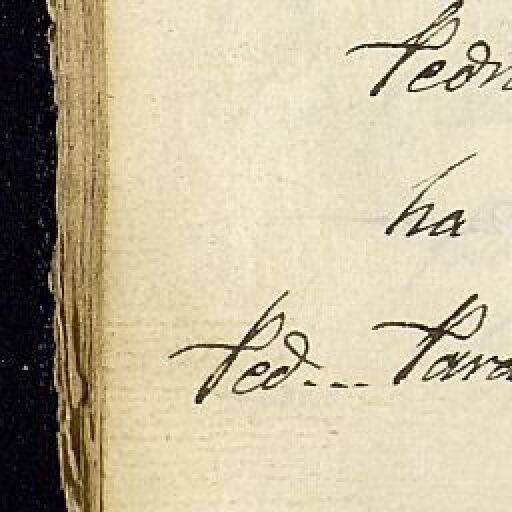 Pedr
ha
Ped... Para